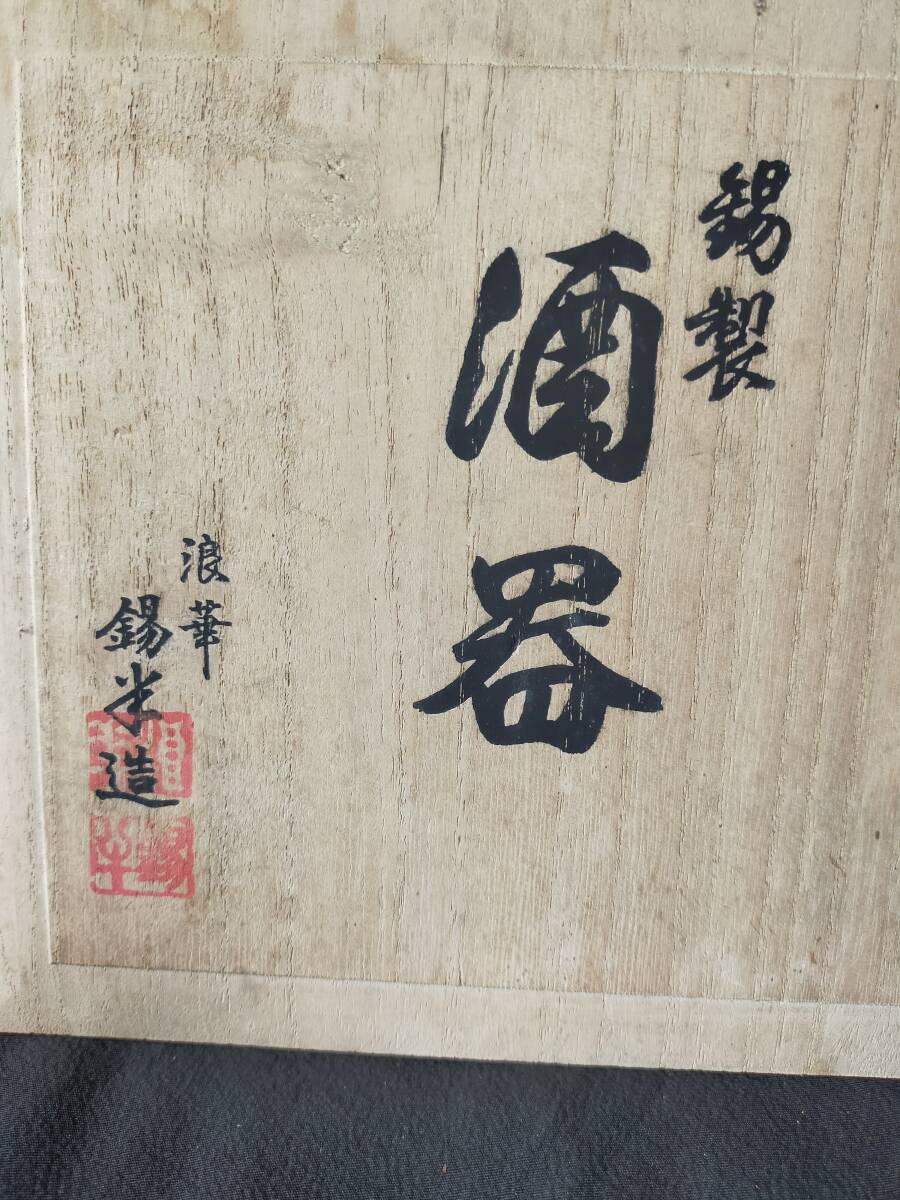 錫製
酒器
浪華
錫半造